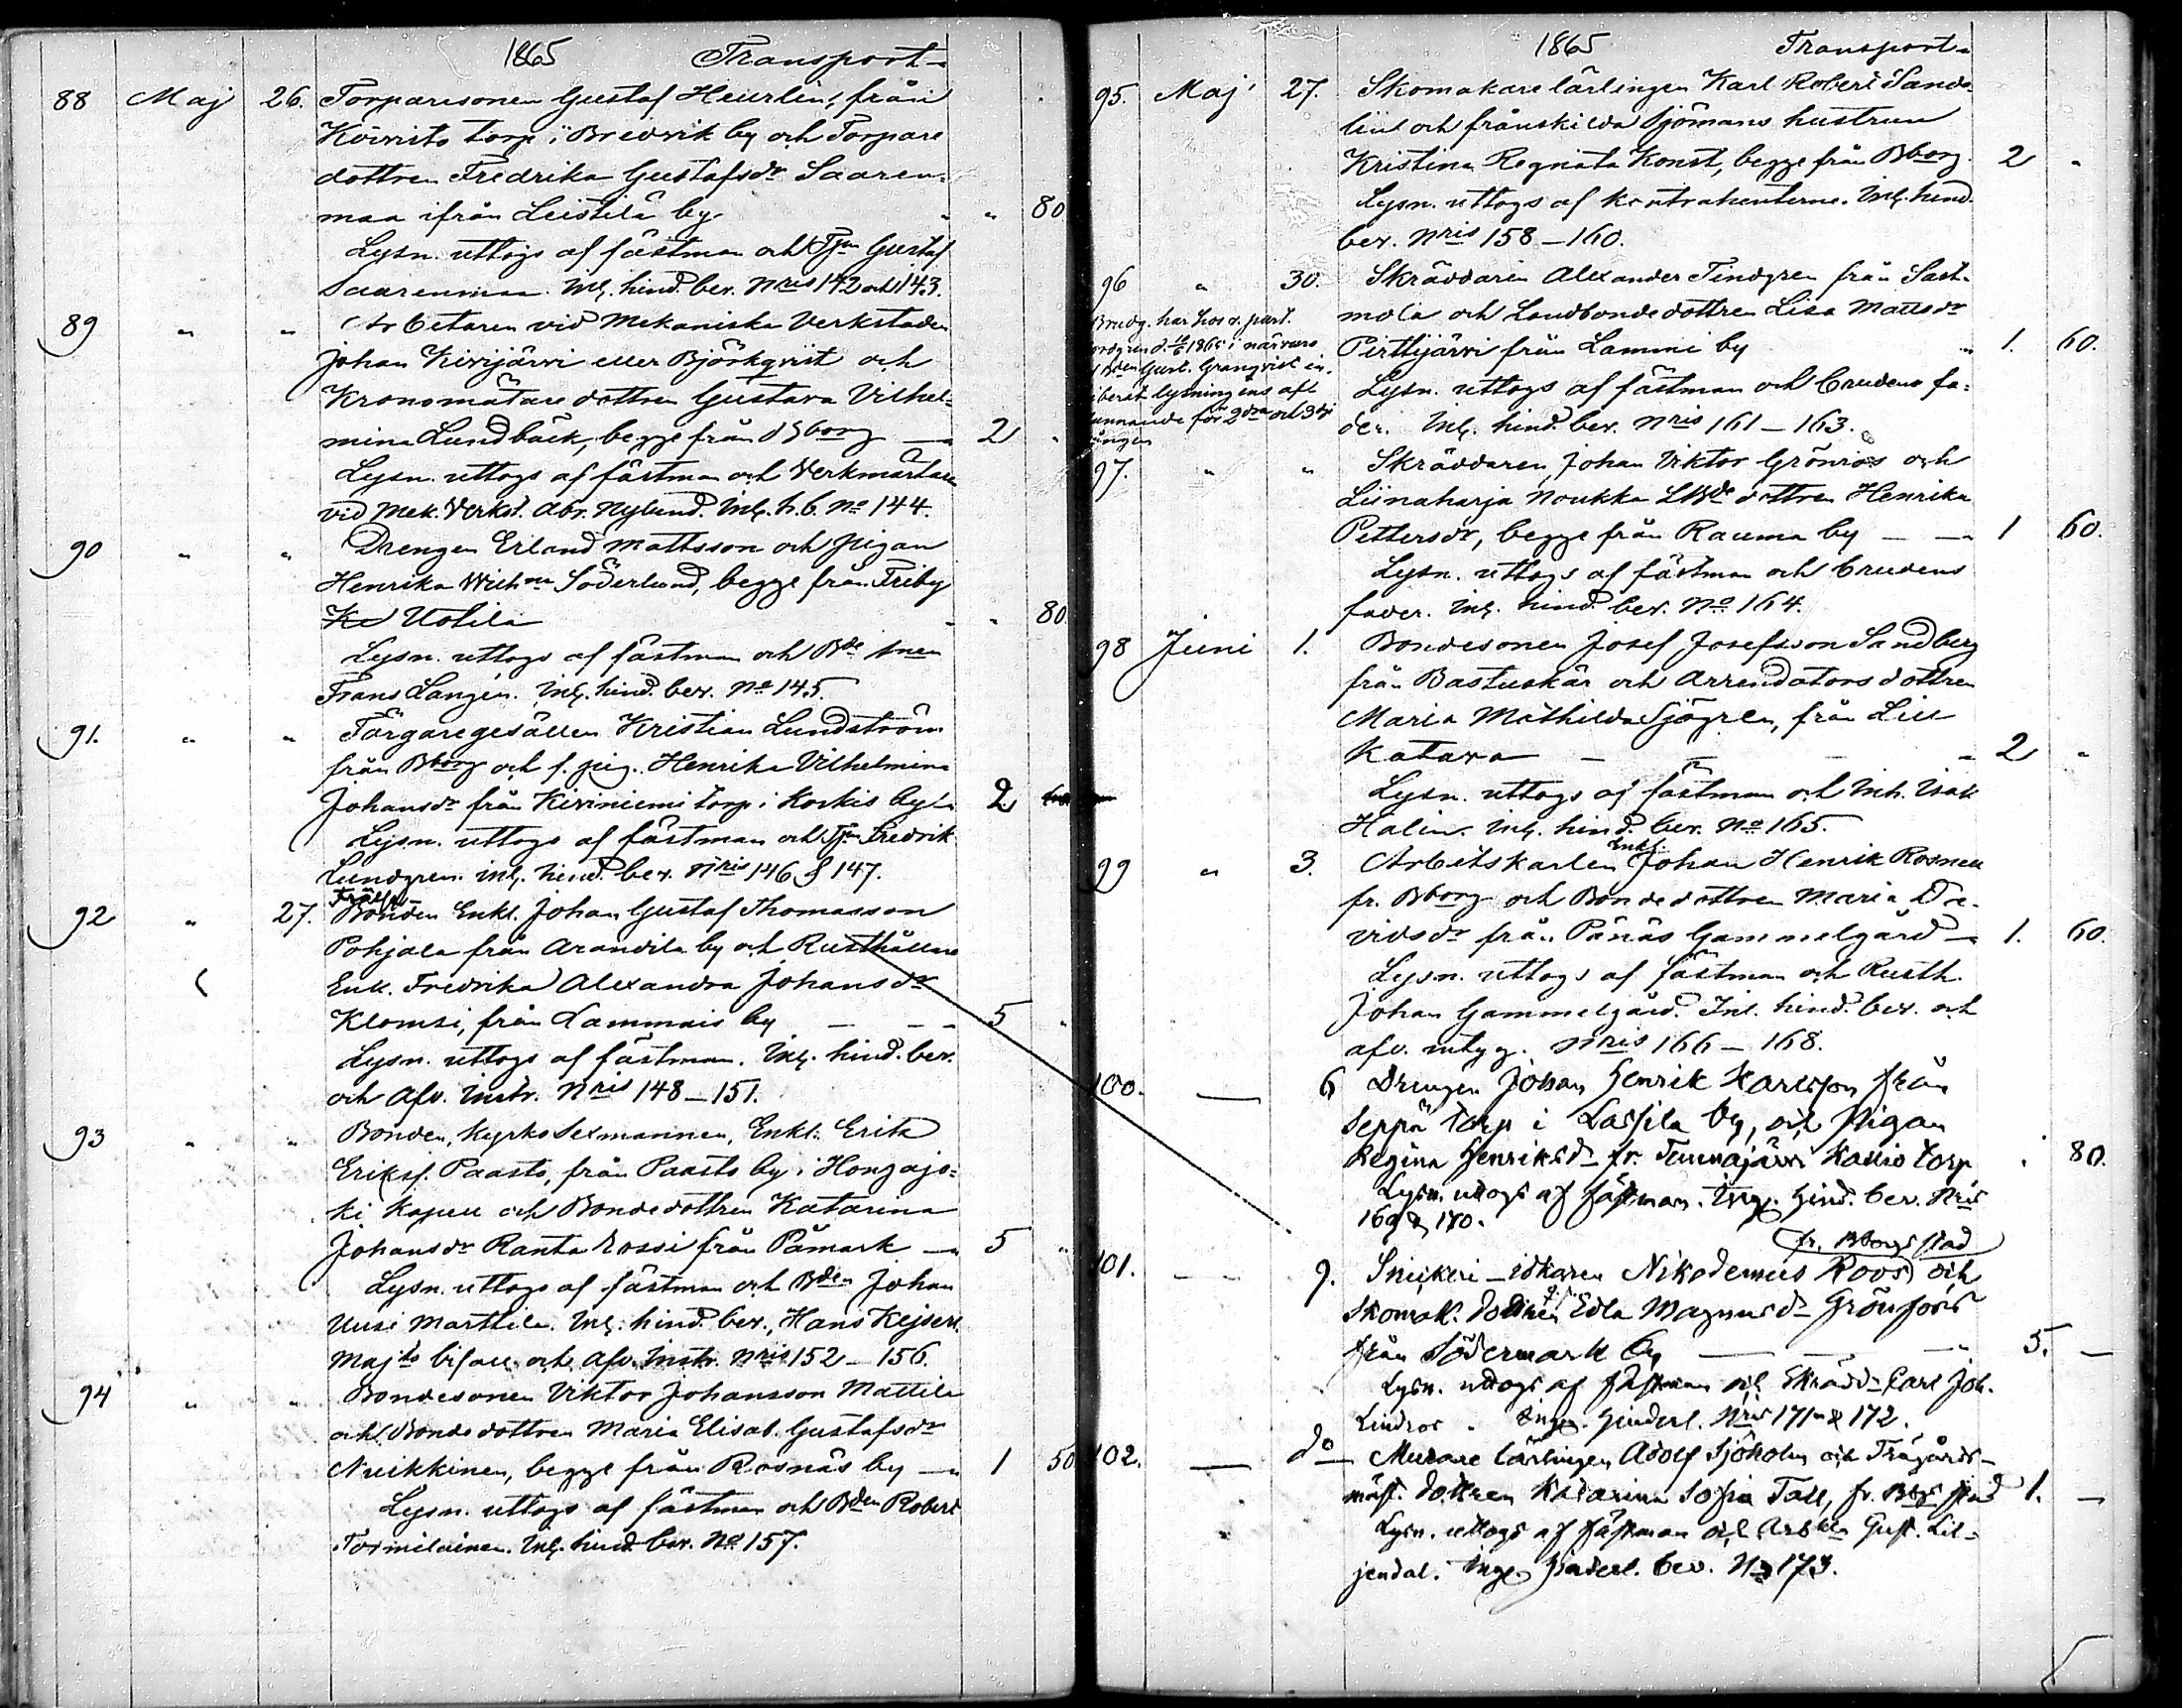 1865 Transport
88 Maj 26. Torparesonen Gustaf Heurlin, från
Koivisto torp i Bredvik by och Torpare
dottren Fredrika Gustafsdr Saaren-
maa ifrån Leistilä by " 80
Lysn. uttogs af fästman och Tjn Gustaf
Saarenmaa. Inl. hind. bev. Nris 142 och 143.
89 " " Arbetaren vid Mekaniska Verkstaden
Johan Kivijärvi eller Björkqvist och
Kronomätare dottren Gustava Vilhel-
mina Lundbäck, begge från Bborg — 2 "
Lysn. uttogs af fästman och Verkmästare
vid Mek. Verkst. Abr. Nylund. Inl. h. b. No 144.
90 " " Drengen Erland Mattsson och pigan
Henrika Wilhna Söderlund, begge från Friby
Uotila " 80.
Lysn. uttogs af fästman och Bde snen
Frans Langén. Inl. hind. bev. No 145.
91. " " Färgaregesällen Kristian Lundström
från Bborg och f. pig. Henrika Vilhelmina
Johansdr från Kiviniemi torp i Korkis by 2
Lysn. uttogs af fästman och Tjn Fredrik
Lundgren. Inl. hind. bev. Nris 146 & 147.
Frälse-
92 " 27. Bonden Enkl. Johan Gustaf Thomasson
Pohjala från Arandila by och Rusthållare
Enk. Fredrika Alexandra Johansdr
Klomsi, från Lammais by — — 5 "
Lysn. uttogs af fästman. Inl. hind. bev.
och Afv. instr. Nris 148–151.
93 " " Bonden, Kyrko Sexmannen, Enkl. Erik
Eriksf. Paasto, från Paasto by i Hongajo-
ki kapell och Bondedottren Katarina
Johansdr Ranta Rossi från Påmark — 5 "
Lysn. uttogs af fästman och Bden Johan
Uusi Marttila. Inl. hind. bev., Hans Kejserl.
Majts bifall och Afv. Instr. Nris 152–156.
94 " " Bondesonen Viktor Johansson Mattila
och Bonde dottren Maria Elisab. Gustafsdr
Nuikkinen, begge från Rosnäs by — 1 50
Lysn. uttogs af fästman och Bden Robert
Tormilainen. Inl. hind. bev. No 157.
1865 Transport
95. Maj 27. Skomakare lärlingen Karl Robert Sand-
lin och frånskilda Sjömans hustrun
Kristina Regnata Konst, begge från Bborg. 2 "
Lysn. uttogs af kontrahenterne. Inl. hind.
bev. Nris 158–160.
96 " 30. Skräddaren Alexander Tindgren från Sast-
mola och Landbonde dottren Lisa Mattsdr
Perttijärvi från Lammi by " 1. 60.
Lysn. uttogs af fästman och brudens fa-
der. Inl. hind. bev. Nris 161–163.
Brudg. har hos v. past.
1865 i närvaro
Gust. Granqvist
lysningens af-
för 2dra och 3dje
gången
97. " " Skräddaren, Johan Viktor Grönroos och
Liinaharja Noukka LBde dottren Henrika
Pettersdr, begge från Rauma by — — 1 60.
Lysn. uttogs af fästman och brudens
fader. Inl. hind. bev. No 164.
98 Juni 1. Bondesonen Josef Josefsson Sandberg
från Bastuskär och Arrendators dottren
Maria Mathilda Sjögren, från Lill
Katava — — — 2 "
Lysn. uttogs af fästman och Inh. Isak
Halin. Inl. hind. bev. No 165.
Enkl.
99 " 3. Arbetskarlen Johan Henrik Rosnell
fr. Bborg och Bonde dottren Maria Da-
vidsdr från Pänäs Gammelgård — 1. 60.
Lysn. uttogs af fästman och Rusth.
Johan Gammelgård. Inl. hind. bev. och
afv. intyg. Nris 166–168.
100. — 6 Drengen Johan Henrik Karlsson från
Seppä torp i Lassila by, och Pigan
Regina Henriksdr fr. Tuunajärvi Kallio torp " 80.
Lysn. uttogs af fästman. Inge. hind. bev. Nris
169 & 170.
fr. Bborgs stad
101. — 9. Snickeri-idkaren Nikodemus Roos och
Skomak. dottren Edla Magnusdr Grönfors
från Södermark by — — 5. —
Lysn. uttogs af fästman och Skrädd. Carl Joh.
Lindros. Inge. hinderl. Nris 171 & 172.
102. — do Murare lärlingen Adolf Sjöholm och Trägårds-
mäst. dottren Katarina Sofia Tall, fr. Bbgs stad 1. —
Lysn. uttogs af fästman och Gust. Lil-
jendal. Inge. hinderl. bev. No 173.